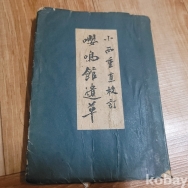 小西重直校訂
嚶鳴館遺草
kobay